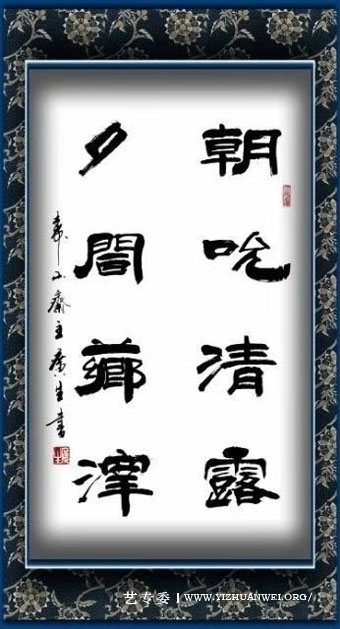 朝吮清露
夕薌澤
齋主廣生書
艺专委 | WWW.YIZHUANWEI.ORG/